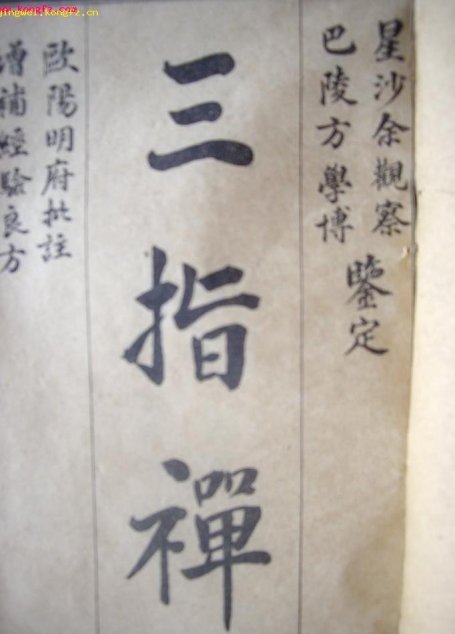 www.kongfz.com
jingwei.kongfz.cn
星沙余觀察
巴陵方學博
鑒定
三指禪
歐陽明府批註
增補經驗良方